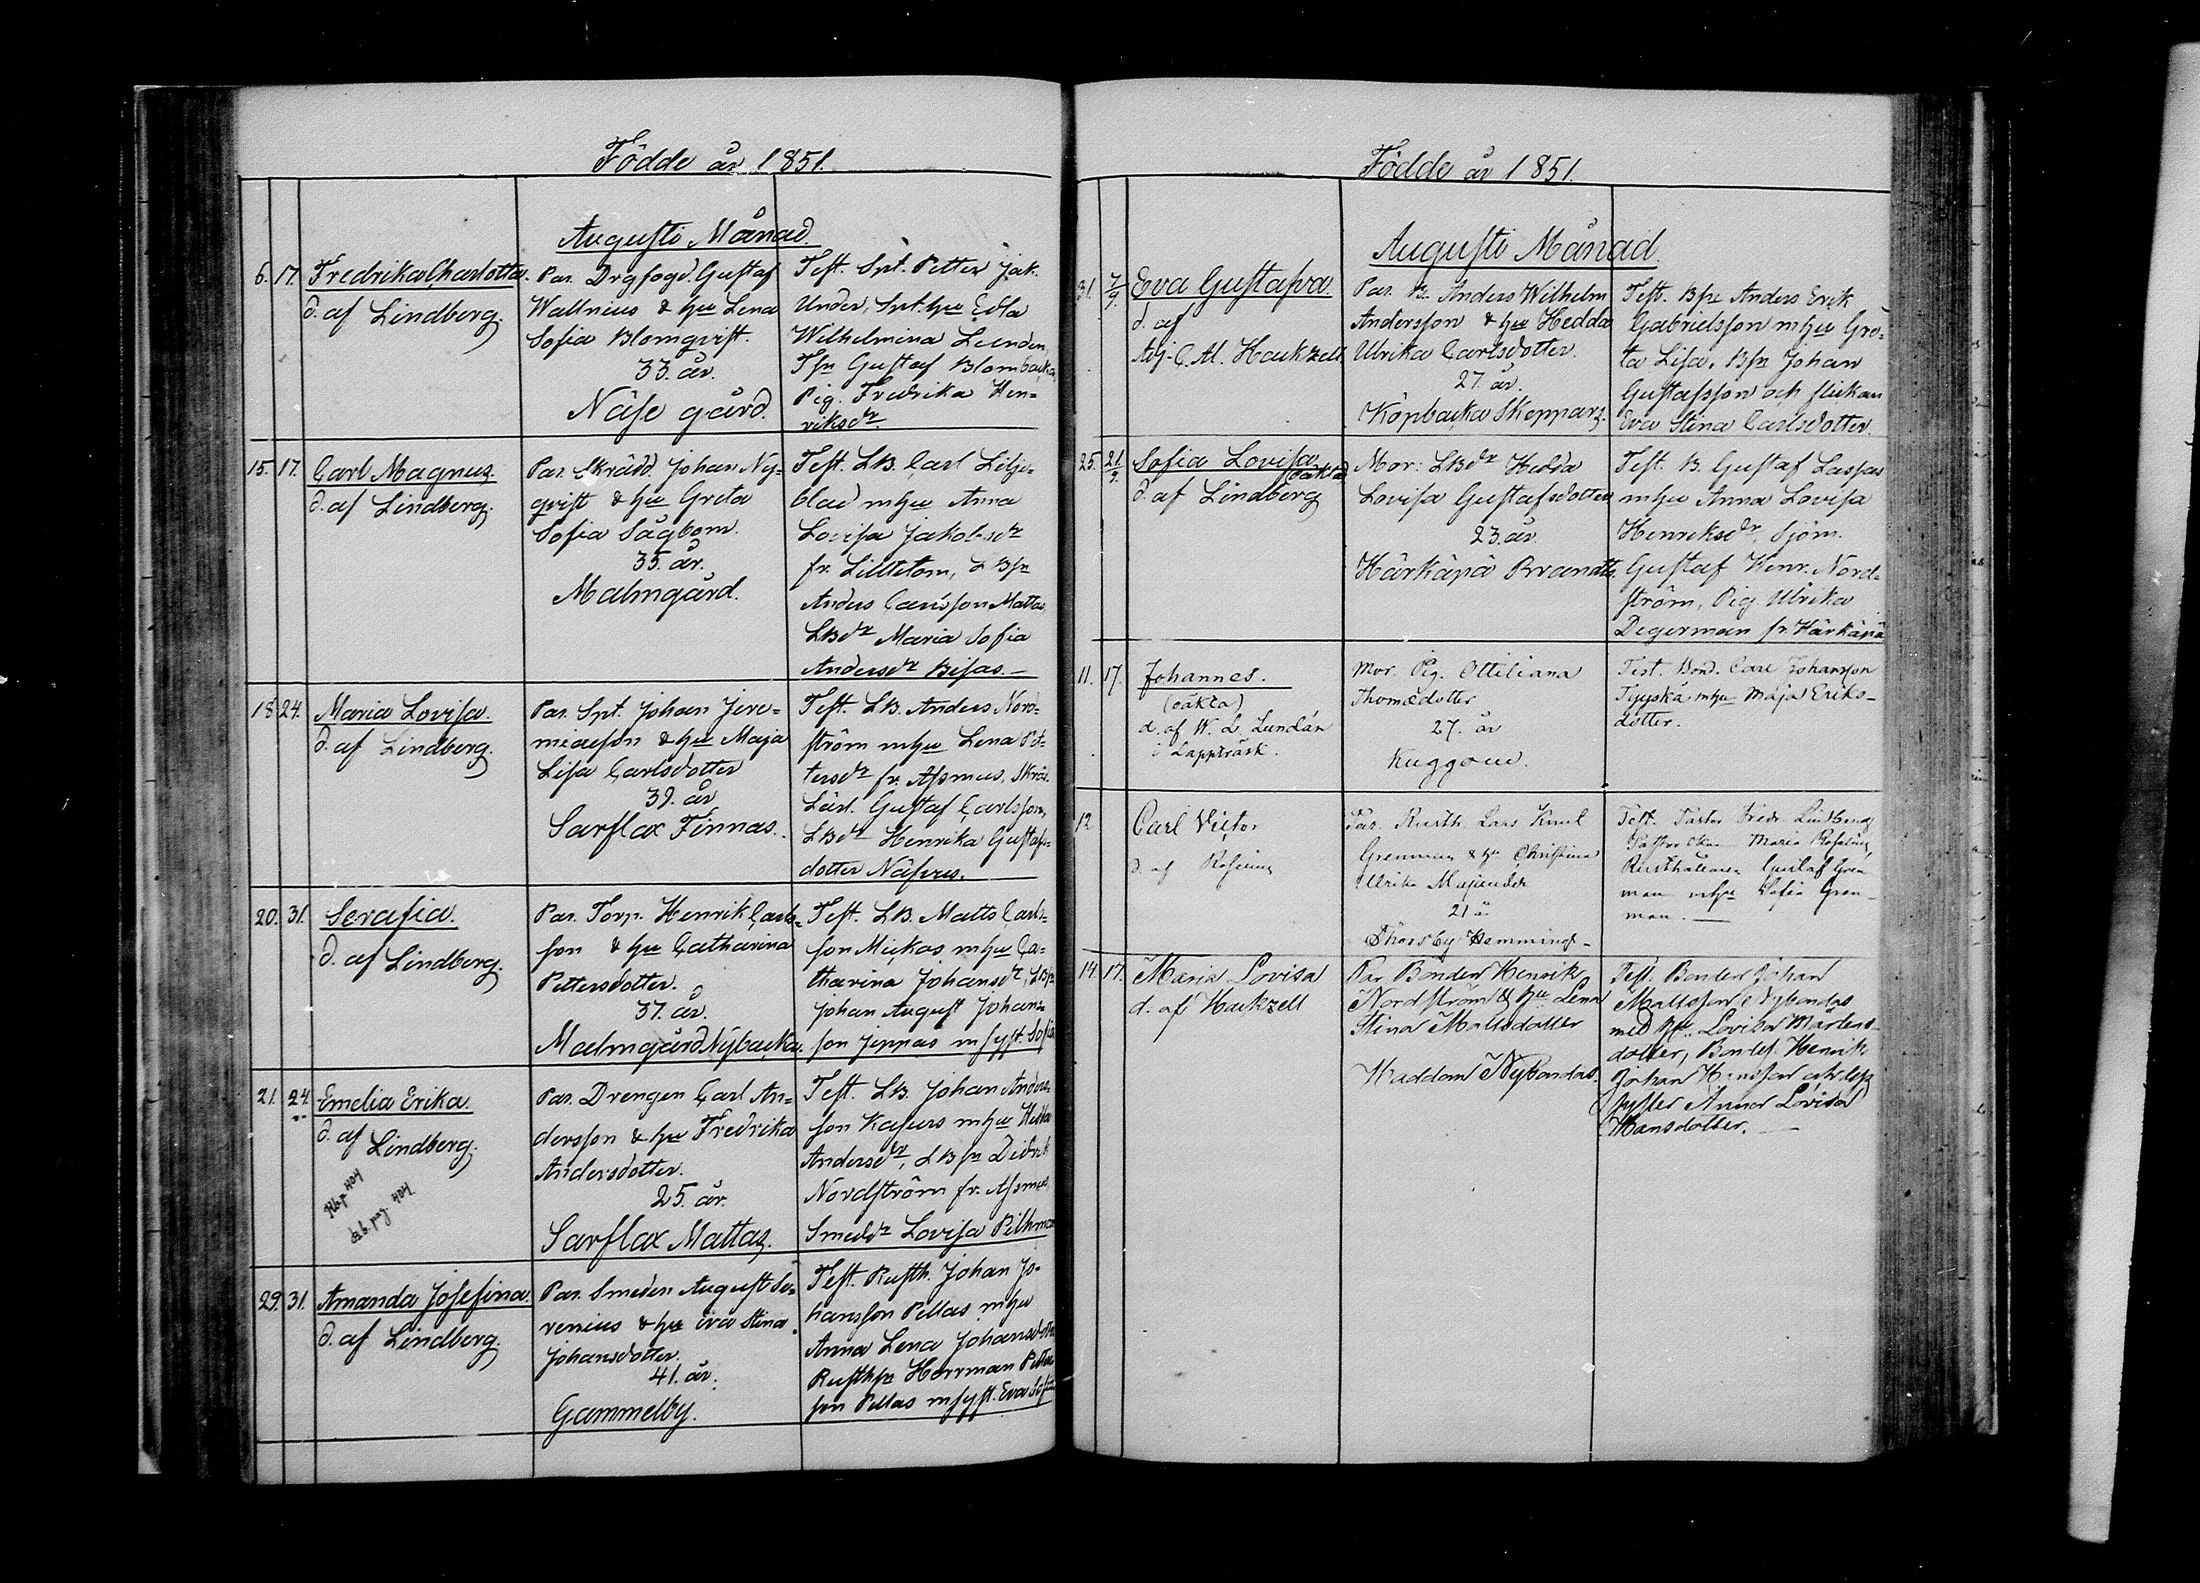 Födde år 1851.
Augusti Månad.
6. 17. Fredrika Charlotta.
d. af Lindberg.
Par. Drgfogd. Gustaf
Wallnius & hu Lena
Sofia Blomqvist.
33. år.
Näse gård.
Test. Spt. Petter Jak.
Under, Spt. hu Edla
Wilhelmina Lunden,
Gustaf Blombacka,
Pig. Fredrika Hen-
riksdr
15. 17. Carl Magnus.
d. af Lindberg.
Par. Skrädd. Johan Ny-
qvist & hu Greta
Sofia Sågbom.
35. år.
Malmgård.
Test. LB. Carl Lilje-
blad mhu Anna
Lovisa Jakobsdr
fr. Lilltetom, LBsn
Anders Carlsson Mattas,
LBdr Maria Sofia
Andersdr Bisas.
18 24. Maria Lovisa.
d. af Lindberg.
Par. Spt. Johan Jere-
miasson & hu Maja
Lisa Carlsdotter
39. år
Sarflax Finnas.
Test. LB. Anders Nord-
ström mhu Lena Pet-
tersdr fr. Assmus, Skräd.
Lärl. Gustaf Carlsson,
LBdr Henrika Gustafs-
dotter Näsrus.
20. 31. Serafia.
d. af Lindberg.
Par. Torp. Henrik Carls-
son & hu Catharina
Pettersdotter.
37. år.
Malmgård Nybacka.
Test. LB. Matts Carls-
son Mickos mhu Ca-
tharina Johansdr, LBsn
Johan August Johans-
son Jeppas m syst. Sofia
21. 24. Emelia Erika.
d. af
Lindberg.
Rbp 404
lb. pag. 404.
Par. Drengen Carl An-
dersson & hu Fredrika
Andersdotter.
25. år.
Sarflax Mattas.
Test. LB. Johan Anders-
son Kasurs mhu Hedda
Andersdr, LBsn Didrik
Nordström fr. Assmus,
Smeddr Lovisa Pilhman
29. 31. Amanda Josefina.
d. af Lindberg.
Par. Smeden August Se-
renius & hu Eva Stina
Johansdotter.
41. år.
Gammelby.
Test. Rusth. Johan Jo-
hansson Pellas mhu
Anna Lena Johansdotter
Rusthsn Herrman Petters-
son Pellas m syst. Eva Sofia
Födde år 1851.
Augusti Månad.
31. 7/9. Eva Gustafva.
d. af
Adj. C. M. Hackzell
Par. B. Anders Wilhelm
Andersson & hu Hedda
Ulrika Carlsdotter.
27. år.
Köpbacka Skeppars.
Test. Bsn Anders Erik
Gabrielsson mhu Gre-
ta Lisa, Bsn Johan
Gustafsson och flickan
Eva Stina Carlsdotter.
25. 21/9. Sofia Lovisa
(oäkta)
d. af Lindberg
Mor: LBdr Hedda
Lovisa Gustafsdotter
23. år.
Härkäpä Brandts.
Test. B. Gustaf Laspas
mhu Anna Lovisa
Henriksdr, Sjöm.
Gustaf Henr. Nord-
ström, Pig. Ulrika
Degerman fr. Härkäpä
11. 17. Johannes.
(oäkta)
d. af W. L. Lundán
i Lappträsk.
Mor. Pig. Ottiliana
Thomedotter
27. år
Kuggom.
Test. Bond. Carl Johansson
Tyyskä mhu Maja Eriks-
dotter.
12 Carl Victor
d. af Rosening
Par. Rusth. Lars Knut
Grenman & hu Christina
Ulrika Majander
21 år
Thorsby Hemmings-
Test. Pastor Fredr. Lindberg
Pastorskan Maria Rosening
Rusthållaren Gustaf Gren
man mhu Sofia Gren-
man.
14. 17. Maria Lovisa
d. af Hackzell
Par. Bonden Henrik
Nordström & hu Lena
Stina Matsdotter
Haddom Nybondas.
Test. Bonden Johan
Mattsson Nybondas
med hu Lovisa Mårtens-
dotter, Henrik
Johan Hansson
syster Anna Lovisa
Hansdotter.